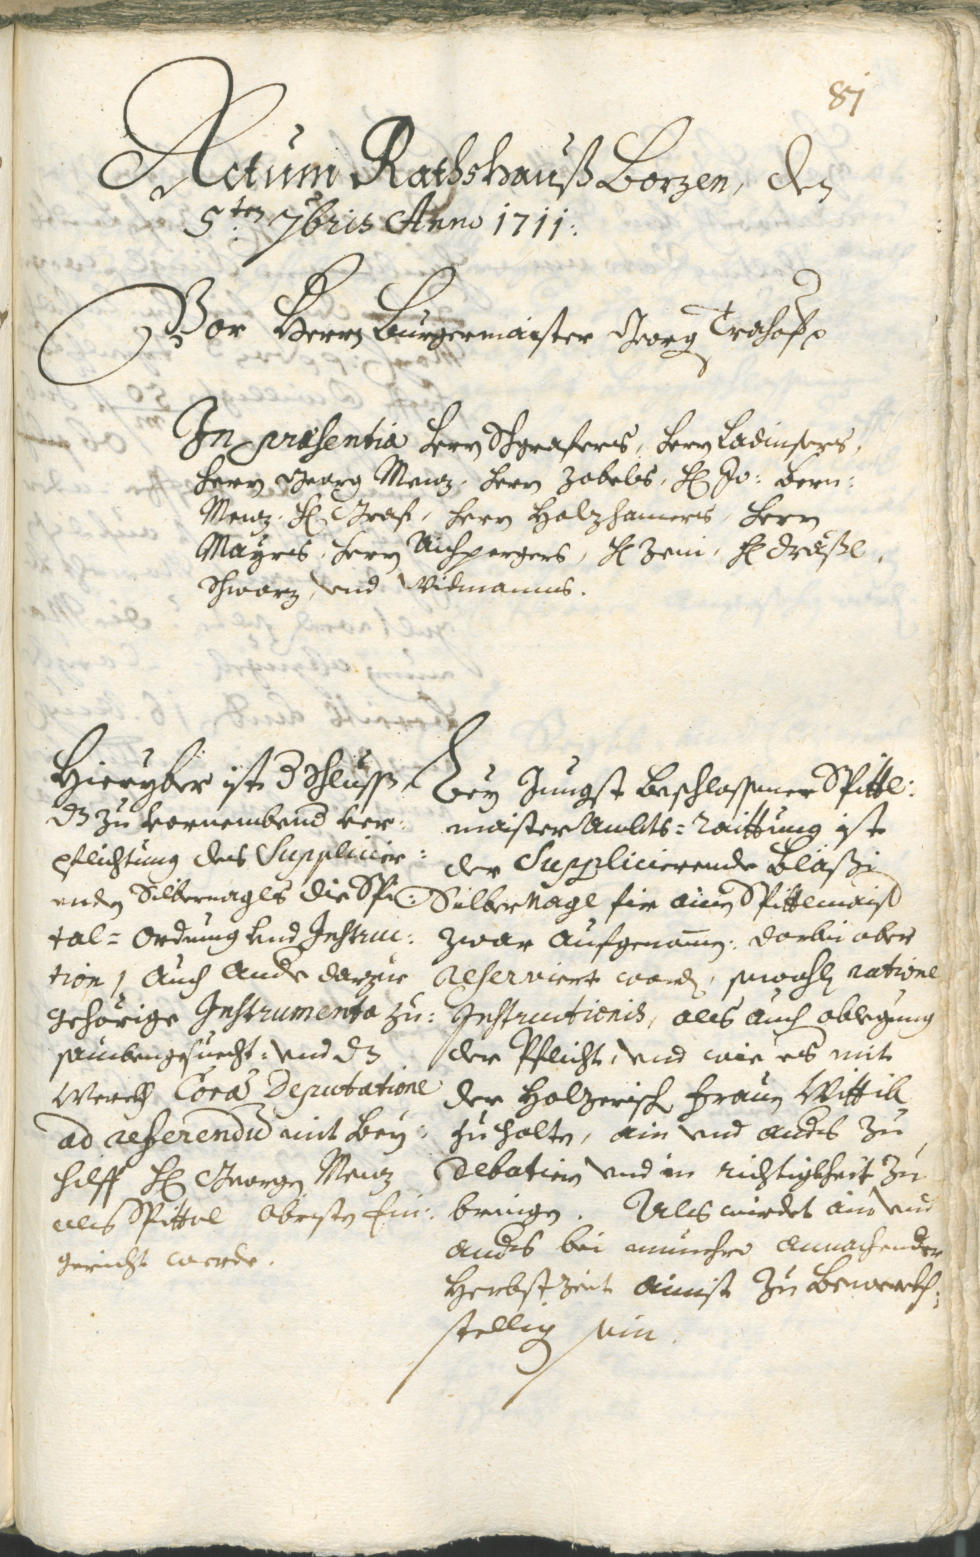 87
Actum Rathshauß Botzen, den
5.ten 7bris Anno 1711.
Vor Herrn Burgermaister Georg Trohofer
In præsentia Herrn Schgrafers, Herrn Ladinsers,
Herrn Georg Menz, Herrn Zobels, H: Jo: Bern:
Menz, H: Graf, Herrn Holzhamers, Herrn
Mayrs, Herrn Aichpergers, H: Zeni, H: Dräxl,
Schwarz, und Widmanns.
Hierüber ist d Schluss,
dz zu vornembend ver:
pflichtung des Supplicier:
enden Silbernagls die Spi:
tal= Ordnung und Instruc:
tion, auch ande darzue
gehörige Instrumenta zu:
sambengesuecht: und dz
Werch Corã Deputatione
ad referendũ mit Bey:
hilff H: Georgen Menz
als Spittal obristen Ein:
gericht werde.
Bey Jungst beschlossener Spittl:
maister Ambts=Raittung ist
der Supplicierende Bläsi
Silbernagl fir ainen Spittlmaist
zwar aufgenomen: darbei aber
reserviert word, sowohl ratione
Instructionis, als auch ablegung
der Pflicht, und wie es mit
der Holzerisch Frauen Wittib
zu halten, ain und anders zu
debatiern und in richtigkheit zu
bringen. Als wirdet ain und
anders bei nunmehro annachender
Herbstzeit ainist zu bewerkh:
stellig sein.